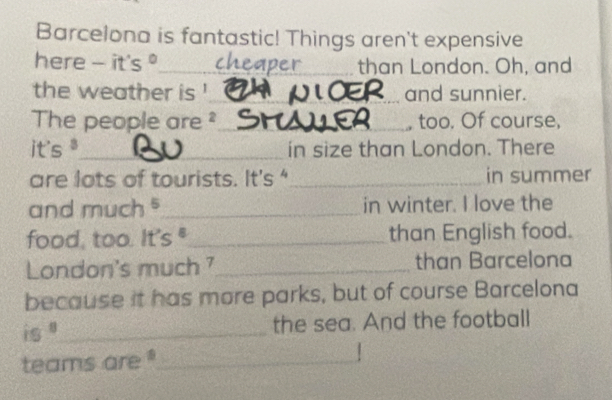 Barcelona is fantastic! Things aren't expensive
here – it's 0 cheaper than London. Oh, and
the weather is 1 NICER and sunnier.
The people are 2 SMALLER, too. Of course,
it's 3 BU in size than London. There
are lots of tourists. It's 4 in summer
and much 5 in winter. I love the
food, too. It's 6 than English food.
London's much 7 than Barcelona
because it has more parks, but of course Barcelona
is 8 the sea. And the football
teams are 9 !